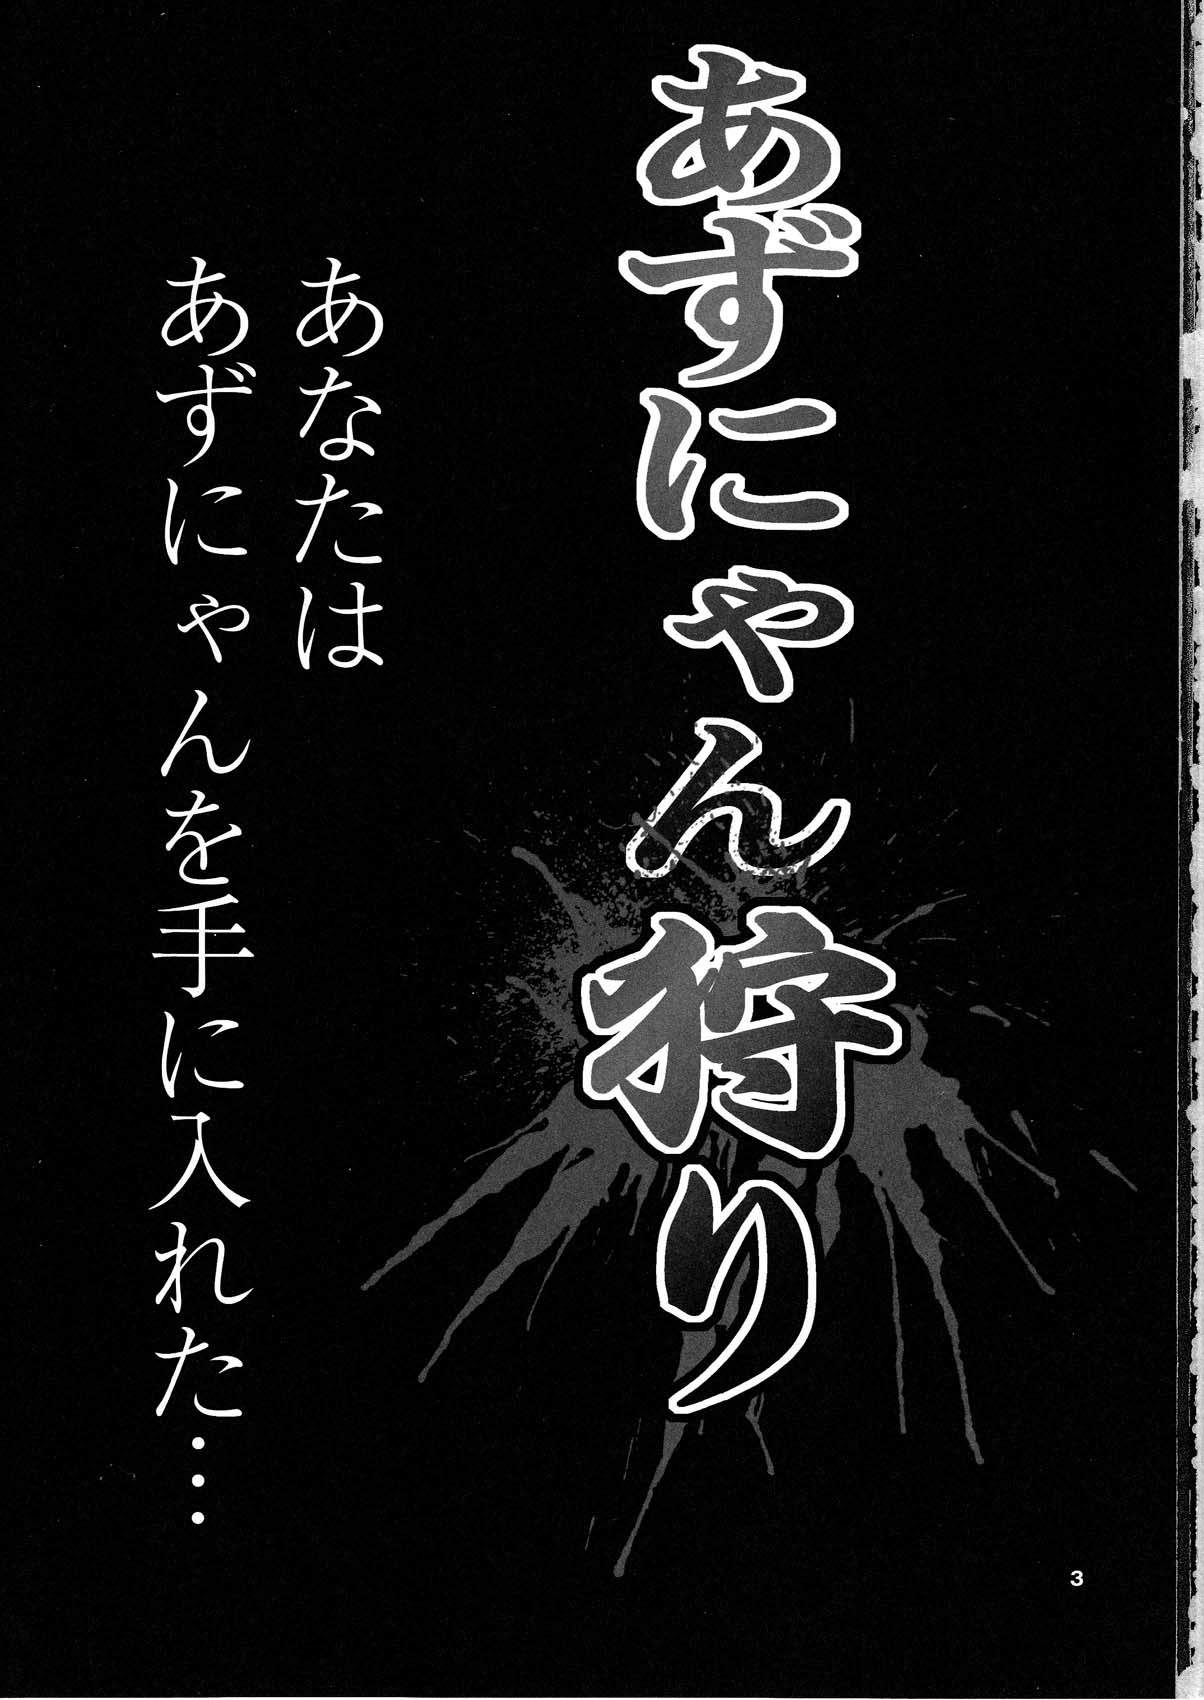 あずにゃん狩り
あなたは
あずにゃんを手に入れた…
3